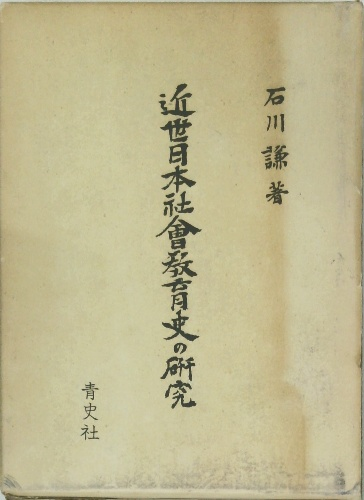 石川謙著
近世日本社會教育史の研究
青史社